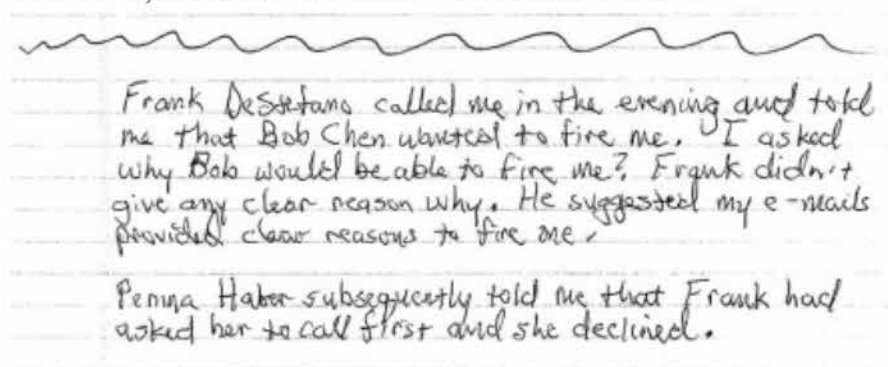 Frank DeStefano called me in the evening and told
me that Bob Chen wanted to fire me. I asked
why Bob would be able to fire me? Frank didn't
give any clear reason why. He suggested my e-mails
provided clear reasons to fire me.
Penina Haber subsequently told me that Frank had
asked her to call first and she declined.